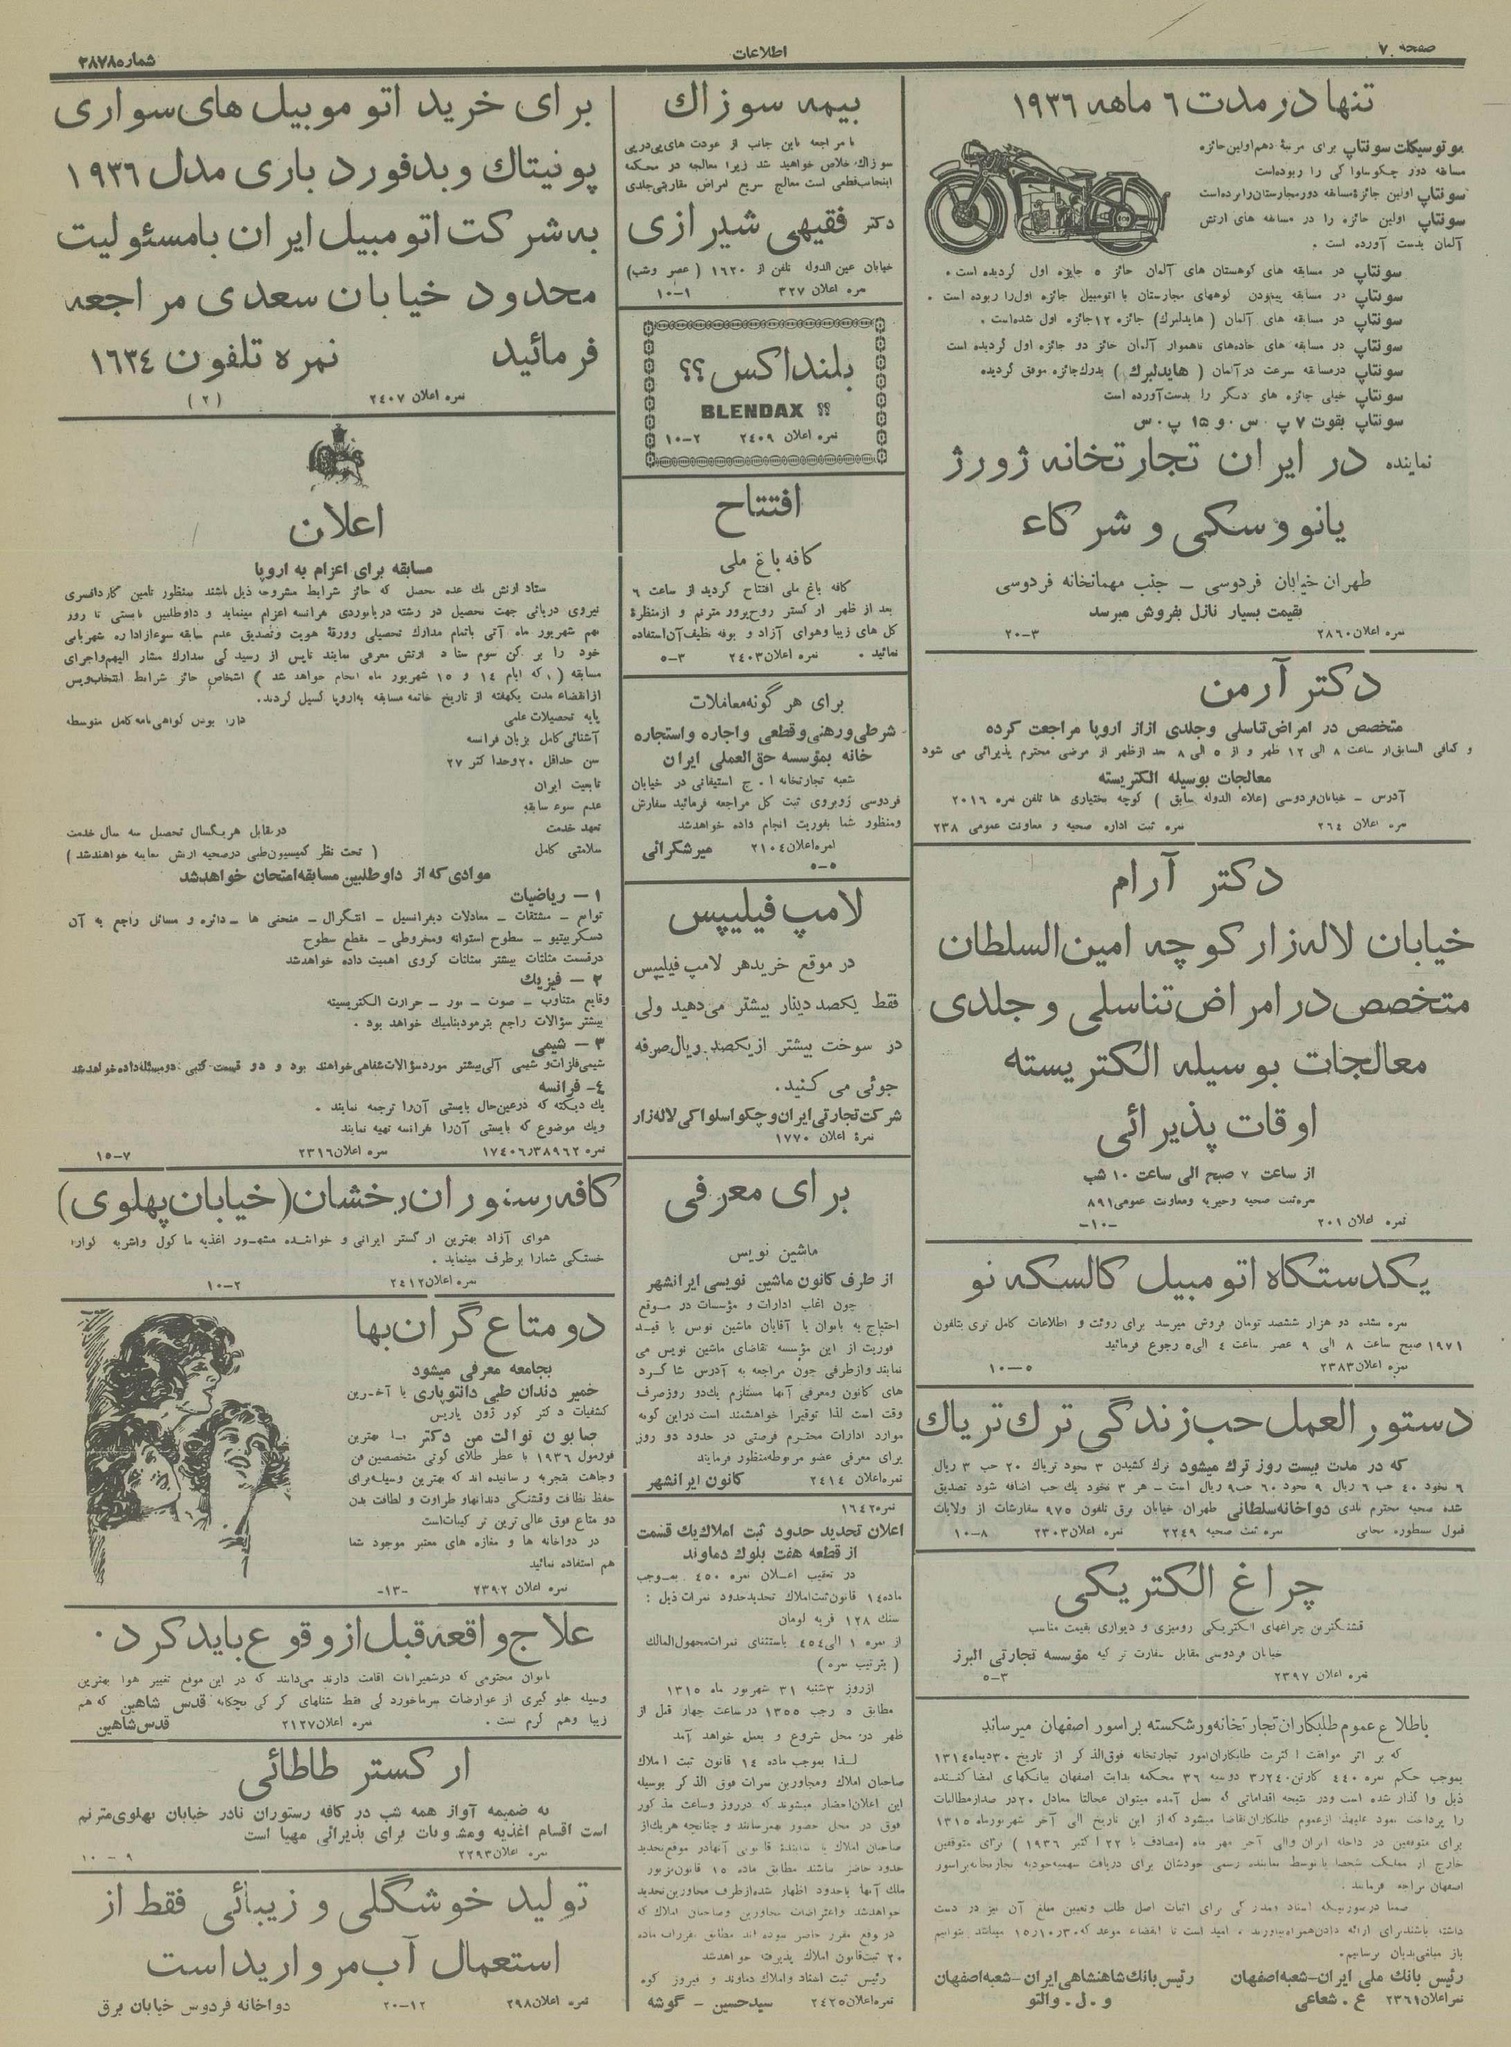 صفحه ۷
اطلاعات
شماره ۳۸۷۸
تنها در مدت ٦ ماهه ۱۹۳٦
موتوسیکلت سونتاپ برای مرتبهٔ دهم اولین جائزه
مسابقه دور چکوسلواکی را ربوده‌است
سونتاپ اولین جائزهٔ مسابقه دور مجارستان را برده‌است
سونتاپ اولین جائزه را در مسابقه های ارتش
آلمان بدست آورده است .
سونتاپ در مسابقه های کوهستان های آلمان حائز ۵ جایزه اول گردیده است .
سونتاپ در مسابقه پیمودن کوههای مجارستان با اتومبیل جائزه اول را ربوده است .
سونتاپ در مسابقه های آلمان ( هایدلبرك) جائزه ۱۲ جائزه اول شده‌است .
سونتاپ در مسابقه های جاده‌های ناهموار آلمان حائز دو جائزه اول گردیده است
سونتاپ درمسابقه سرعت در آلمان ( هایدلبرك ) بدرك جائزه موفق گردیده
سونتاپ خیلی جائزه های دیگر را بدست‌آورده است
سونتاپ بقوت ۷ پ . س . و ۱۵ پ . س
نماینده در ایران تجارتخانه ژورژ
یانووسکی و شرکاء
طهران خیابان فردوسی – جنب مهمانخانه فردوسی
بقیمت بسیار نازل بفروش میرسد
نمره اعلان ۲۸٦۰ ۳–۲۰
دکتر آرمن
متخصص در امراض تناسلی و جلدی ازاز اروپا مراجعت کرده
و کمافی السابق از ساعت ۸ الی ۱۲ ظهر و از ۵ الی ۸ بعد ازظهر از مرضی محترم پذیرائی می شود
معالجات بوسیله الکتریسته
آدرس – خیابان فردوسی (علاء الدوله سابق ) کوچه بختیاری ها تلفن نمره ۲۰۱٦
نمره اعلان ۲٦٤ نمره ثبت اداره صحیه و معاونت عمومی ۲۳۸
دکتر آرام
خیابان لاله‌زار کوچه امین السلطان
متخصص در امراض تناسلی و جلدی
معالجات بوسیله الکتریسته
اوقات پذیرائی
از ساعت ۷ صبح الی ساعت ۱۰ شب
نمره ثبت صحیه و خیریه ومعاونت عمومی ۸۹۱
نمره اعلان ۲۰۱ –۱۰–
یکدستگاه اتومبیل کالسکه نو
نمره شده دو هزار ششصد تومان فروش میرسد برای رؤیت و اطلاعات کامل تری بتلفون
۱۹۷۱ صبح ساعت ۸ الی ۹ عصر ساعت ٤ الی ۵ رجوع فرمائید
نمره اعلان ۲۳۸۳ ۵–۱۰
دستور العمل حب زندگی ترك تریاك
که در مدت بیست روز ترك میشود ترك کشیدن ۳ نخود تریاك ۲۰ حب ۳ ریال
٦ نخود ٤۰ حب ٦ ریال ۹ نخود ٦۰ حب ۹ ریال است – هر ۳ نخود یك حب اضافه شود تصدیق
شده صحیه محترم بلدی دواخانه سلطانی طهران خیابان برق تلفون ۹۷۵ سفارشات از ولایات
قبول
نمره ثبت صحیه ۲۲٤۹ نمره اعلان ۲۳۰۳ ۸–۱۰
چراغ الکتریکی
قشنگترین چراغهای الکتریکی رومیزی و دیواری بقیمت مناسب
خیابان فردوسی مقابل سفارت ترکیه مؤسسه تجارتی البرز
نمره اعلان ۲۳۹۷ ۳–۵
باطلاع عموم طلبکاران تجارتخانه ورشکسته براسور اصفهان میرساند
که بر اثر موافقت اکثریت طلبکاران امور تجارتخانه فوق‌الذکر از تاریخ ۳۰ دیماه ۱۳۱٤
بموجب حکم نمره ٤٤۰ کارتن ۳ر۲٤۰ دوسیه ۳٦ محکمه بدایت اصفهان ببانکهای امضا کننده
ذیل واگذار شده است ودر نتیجه اقداماتی که بعمل آمده میتوان عجالتاً معادل ۲۰ در صد از مطالبات
را پرداخت نمود علیهذا ازعموم طلبکاران تقاضا میشود که از این تاریخ الی آخر شهریورماه ۱۳۱۵
برای متوقفین در داخله ایران والی آخر مهر ماه (مصادف با ۲۲ اکتبر ۱۹۳٦ ) برای متوقفین
خارج از مملکت شخصاً یا توسط نماینده رسمی خودشان برای دریافت سهمیه خود به تجارتخانه براسور
اصفهان مراجعه فرمایند .
ضمناً در صورتیکه اسناد ومدرکی برای اثبات اصل طلب وتعیین مبلغ آن نیز در دست
داشته باشند برای ارائه دادن همراه بیاورند . امید است تا انقضاء موعد که ۳۰ر۱۰ر۱۵ میباشد بتوانیم
باز مبالغی بدیان برسانیم.
رئیس بانك ملی ایران–شعبه اصفهان
رئیس بانك شاهنشاهی ایران–شعبه اصفهان
نمره اعلان ۲۳٦۱ ع . شعاعی
و . ل . والتو
بیمه سوزاك
با مراجعه باین جانب از عودت های پی‌در‌پی
سوزاك خلاص خواهید شد زیرا معالجه در محکمه
اینجانب قطعی است معالج سریع امراض مقاربتی جلدی
دکتر فقیهی شیرازی
خیابان عین الدوله تلفن از ۱٦۲۰ ( عصر وشب)
نمره اعلان ۳۲۷ ۱–۱۰
بلنداکس ؟؟
BLENDAX ؟؟
نمره اعلان ۲٤۰۹ ۲–۱۰
افتتاح
کافه باغ ملی
کافه باغ ملی افتتاح گردید از ساعت ٦
بعد از ظهر ارکستر روح‌پرور مترنم و ازمنظرهٔ
گل های زیبا وهوای آزاد و بوفه نظیف آن استفاده
نمائید . نمره اعلان ۲٤۰۳ ۳–۵
برای هر گونه معاملات
شرطی ورهنی وقطعی واجاره واستجاره
خانه بمؤسسه حق‌العملی ایران
شعبه تجارتخانه ا . ج استیفانی در خیابان
فردوسی روبروی ثبت کل مراجعه فرمائید سفارش
ومنظور شما بفوریت انجام داده خواهدشد
نمره اعلان ۲۱۰٤ میرشکرائی
۵–۵
لامپ فیلیپس
در موقع خرید هر لامپ فیلیپس
فقط یکصد دینار بیشتر می‌دهید ولی
در سوخت بیشتر از یکصد ریال صرفه
جوئی می کنید.
شرکت تجارتی ایران و چکواسلواکی لاله‌زار
نمرهٔ اعلان ۱۷۷۰
برای معرفی
ماشین نویس
از طرف کانون ماشین نویسی ایرانشهر
چون اغلب ادارات و مؤسسات در موقع
احتیاج به بانوان یا آقایان ماشین نویس با قید
فوریت از این مؤسسه تقاضای ماشین نویس می
نمایند وازطرفی چون مراجعه به آدرس شاگرد
های کانون ومعرفی آنها مستلزم یك‌دو روز صرف
وقت است لذا توقیراً خواهشمند است در این گونه
موارد ادارات محترم فرصتی در حدود دو روز
برای معرفی عضو مربوطه منظور فرمایند
نمره اعلان ۲٤۱٤ کانون ایرانشهر
نمره ۱٦٤۲
اعلان تحدید حدود ثبت املاك یك قسمت
از قطعه هفت بلوك دماوند
در تعقیب اعلان نمره ٤۵۰ بموجب
ماده ۱٤ قانون ثبت املاك تحدید حدود نمرات ذیل :
سنك ۱۲۸ قریه لومان
از نمره ۱ الی ٤۵٤ باستثنای نمرات مجهول المالك
( بترتیب نمره )
ازروز ۳شنبه ۳۱ شهریور ماه ۱۳۱۵
مطابق ۵ رجب ۱۳۵۵ در ساعت چهار قبل از
ظهر در محل شروع و بعمل خواهد آمد
لذا بموجب ماده ۱٤ قانون ثبت املاك
صاحبان املاك ومجاورین نمرات فوق الذکر بوسیله
این اعلان احضار میشوند که در روز وساعت مذکور
فوق در محل حضور بهمرسانند و چنانچه هریك از
صاحبان املاك یا نمایندهٔ قانونی آنها در موقع تحدید
حدود حاضر نباشند مطابق ماده ۱۵ قانون مزبور
ملك آنها با حدود اظهار شده از طرف مجاورین تحدید
خواهد شد واعتراضات مجاورین وصاحبان املاك که
در موقع مقرر حاضر نبوده اند مطابق مقررات ماده
۲۰ ثبت قانون املاك پذیرفته خواهدشد
رئیس ثبت اسناد واملاك دماوند و فیروز کوه
نمره اعلان ۲٤۲۵ سیدحسین – گوشه
برای خرید اتوموبیل های سواری
پونیتاك و بدفورد باری مدل ۱۹۳٦
به شرکت اتومبیل ایران بامسئولیت
محدود خیابان سعدی مراجعه
فرمائید نمره تلفون ۱٦۳٤
نمره اعلان ۲٤۰۷ (۲)
اعلان
مسابقه برای اعزام به اروپا
ستاد ارتش یك عده محصل که حائز شرایط مشروحه ذیل باشند بمنظور تأمین کادر افسری
نیروی دریائی جهت تحصیل در رشته دریانوردی بفرانسه اعزام مینماید و داوطلبین بایستی تا روز
نهم شهریور ماه آتی باتمام مدارك تحصیلی وورقهٔ هویت وتصدیق عدم سابقه سوء از اداره شهربانی
خود را بر کن سوم ستاد ارتش معرفی نمایند تا پس از رسیدگی بمدارك مشار الیهم واجرای
مسابقه ( که ایام ۱٤ و ۱۵ شهریور ماه انجام خواهد شد ) اشخاص حائز شرایط انتخاب وپس
ازانقضاء مدت یکهفته از تاریخ خاتمه مسابقه به‌اروپا گسیل گردند.
پایه تحصیلات علمی دارا بودن گواهی نامه کامل متوسطه
آشنائی کامل بزبان فرانسه
سن حداقل ۲۰ وحداکثر ۲۷
تابعیت ایران
عدم سوء سابقه
تعهد خدمت در مقابل هر یکسال تحصیل سه سال خدمت
سلامتی کامل ( تحت نظر کمیسیون طبی در صحیه ارتش معاینه خواهند شد )
موادی که از داوطلبین مسابقه امتحان خواهد شد
۱ – ریاضیات
توابع – مشتقات – معادلات دیفرانسیل – انتگرال – منحنی ها – دائره و مسائل راجع به آن
دسکریپتیو – سطوح استوانه ومخروطی – مقطع سطوح
درقسمت مثلثات بیشتر بمثلثات کروی اهمیت داده خواهد شد
۲ – فیزیك
وقایع متناوب – صوت – نور – حرارت الکتریسیته
بیشتر سؤالات راجع بترمودینامیك خواهد بود .
۳ – شیمی
شیمی فلزات و شیمی آلی بیشتر مورد سؤالات شفاهی خواهند بود و دو قسمت کتبی: دو مسئله داده خواهد شد
٤– فرانسه
یك دیکته که درعین‌حال بایستی آن‌را ترجمه نمایند .
ویك موضوع که بایستی آن‌را بفرانسه تهیه نمایند
نمره ۳۸۹٦۲ر۱۷٤۰٦ نمره اعلان ۲۳۱٦ ۷–۱۵
کافه رستوران رخشان (خیابان پهلوی)
هوای آزاد بهترین ارکستر ایرانی و خواننده مشهور اغذیه ماکول واشربه گوارا
خستگی شمارا برطرف مینماید .
نمره اعلان ۲٤۱۲ ۲–۱۰
دو متاع گران‌بها
بجامعه معرفی میشود
خمیر دندان طبی دانتوپاری با آخرین
کشفیات دکتر کور ژون پاریس
صابون توالت من دکتر با بهترین
فورمول ۱۹۳٦ با عطر طلای کوتی متخصصین فن
وجاهت بتجربه رسانیده اند که بهترین وسیله برای
حفظ نظافت وقشنگی دندانها و طراوت و لطافت بدن
دو متاع فوق عالی ترین ترکیبات‌است
در دواخانه ها و مغازه های معتبر موجود شما
هم استفاده نمائید
نمره اعلان ۲۳۹۲ –۱۳–
علاج واقعه قبل از وقوع باید کرد .
بانوان محترمی که درشمیرانات اقامت دارند می‌دانند که در این موقع تغییر هوا بهترین
وسیله جلوگیری از عوارضات سرماخوردگی فقط شنلهای کرکی بچگانه قدس شاهین که هم
زیبا وهم گرم است . نمره اعلان ۲۱۲۷ قدس شاهین
ارکستر طاطائی
به ضمیمه آواز همه شب در کافه رستوران نادر خیابان پهلوی مترنم
است اقسام اغذیه ومشروبات برای پذیرائی مهیا است
نمره اعلان ۲۲۹۳ ۹–۱۰
تولید خوشگلی و زیبائی فقط از
استعمال آب مروارید است
نمره اعلان ۲۹۸ ۱۲–۲۰ دواخانه فردوس خیابان برق